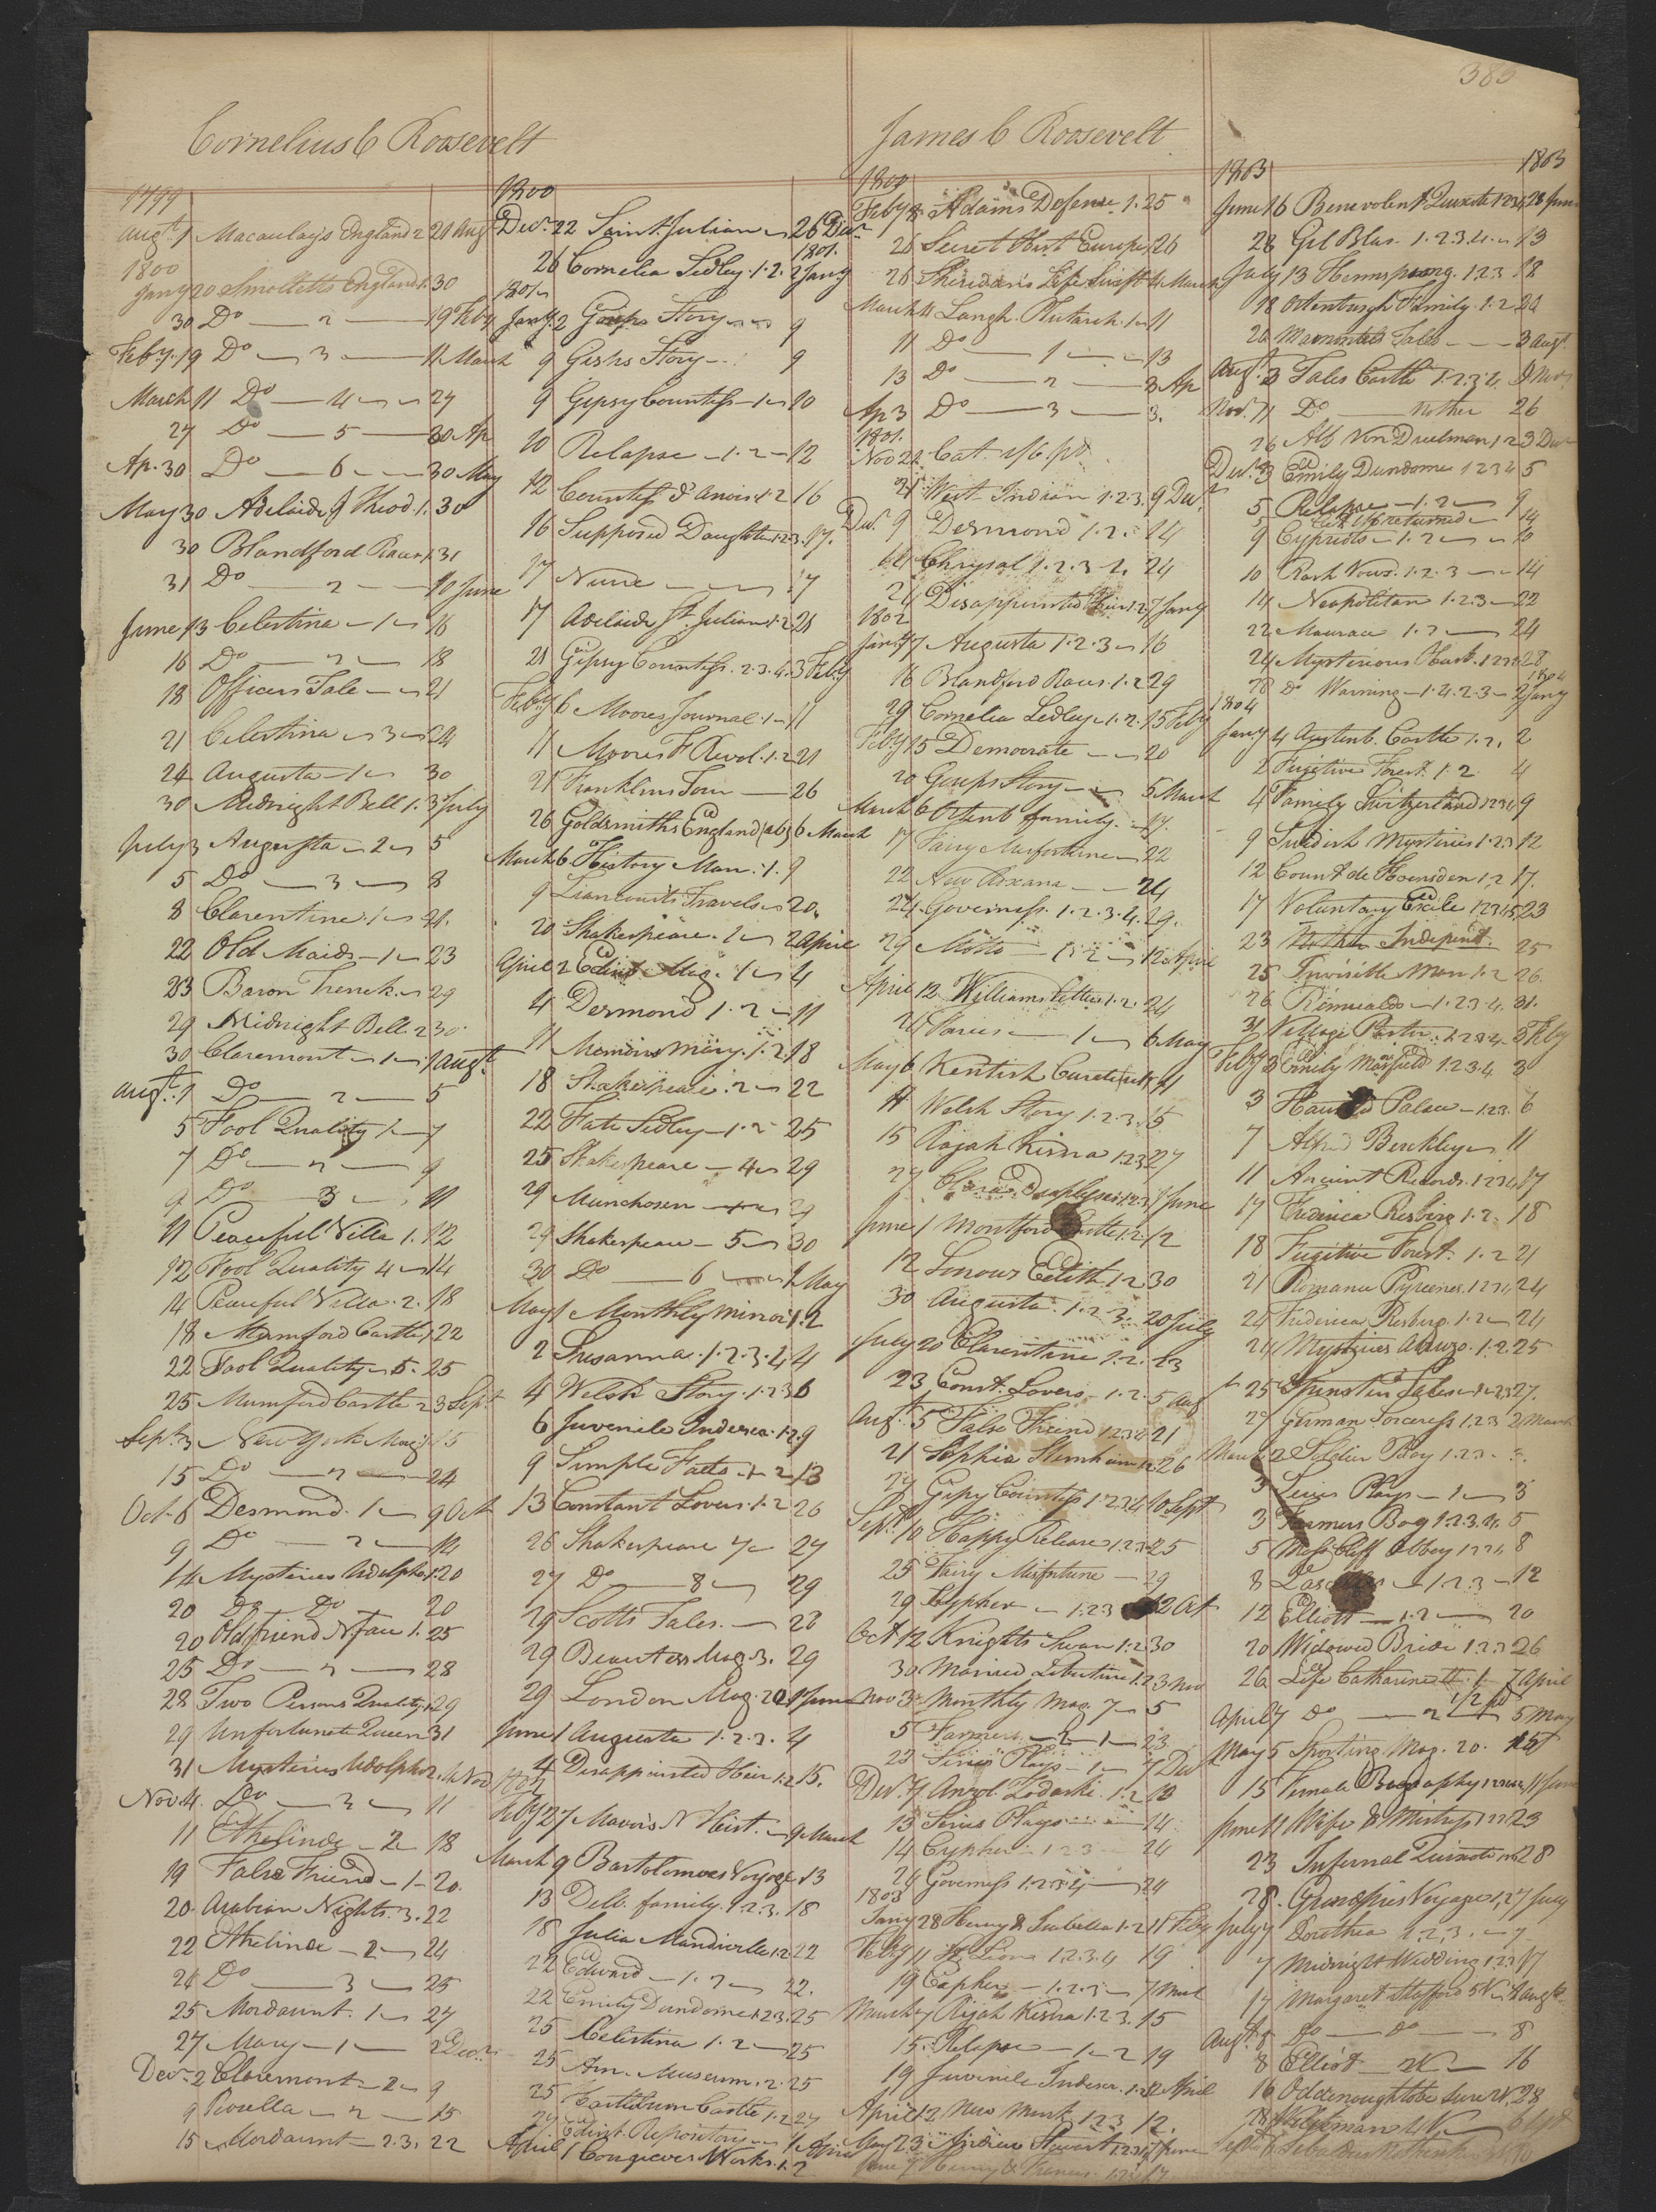 383
Cornelius C Roosevelt
1799
Augt. 1 Macaulays England 2 21 Augt
1800
Jany 20 Smolletts England 1. 30
30 Do — 2 — 19 Feby
Feby. 19 Do — 3 — 11 March
March 11 Do — 4 — 27
27 Do — 5 — 30 Ap
Ap. 30 Do — 6 — 30 May
May 30 Adelaide & Theod. 1. 30
30 Blandford Races 1 31
31 Do — 2 — 10 June
June 13 Celestina — 1 — 16
16 Do — 2 — 18
18 Officers Tale — 21
21 Celestina — 3 — 24
24 Augusta — 1 — 30
30 Midnight Bell 1. 3 July
July 3 Augusta — 2 — 5
5 Do — 3 — 8
8 Clarentine. 1 — 21.
22 Old Maids — 1 — 23
23 Baron Trenck. — 29
29 Midnight Bell. 2 30.
30 Claremont — 1 — 1 Augt.
Augt. 1 Do — 2 — 5
5 Fool Quality 1 — 7
7 Do — 2 — 9
9 Do — 3 — 11
11 Peaceful Villa 1. 12
12 Fool Quality 4 — 14
14 Peaceful Villa. 2. 18
18 Mumford Castle 1 22
22 Fool Quality — 5. 25
25 Mumford Castle 2 3 Sept
Sept. 3 New York Mag. 15
15 Do — 2 — 24
Oct. 6 Desmond. 1 — 9 Oct
9 Do — 2 — 14
14 Mysteries Udolpho 1. 20
20 Do Do 20
20 Old friend N face 1. 25
25 Do — 2 — 28
28 Two Persons Quality 1. 29
29 Unfortunate Queen 31
31 Mysteries Udolpho 2. 4 Nov
Nov. 4. Do — 3 — 11
11 Ethelinde — 2 18
19 False Friend — 1 — 20.
20. Arabian Nights. 3. 22
22 Ethelinde — 2 — 24
24 Do — 3 — 25
25 Mordaunt. 1 — 27
27 Mary — 1 — 2 Decr.
Decr. 2 Claremont — 2 — 9
9 Rosella — 2 — 15
15 Mordaunt — 2. 3. 22
1800
Decr. 22 Saint Julian — 26 Decr.
1801.
26 Cornelia Sedley. 1. 2. 2 Jany
1801
Jany. 2 Gossips Story — 9
9 Gossips Story — 9
9 Gipsy Countess — 1 — 10
10 Relapse — 1. 2 — 12
12 Countess d'Anois 1. 2 16
16 Supposed Daughter 1. 2. 3. 17.
17 Nurse — 17
17 Adelaide St. Julian 1. 2 21
21 Gipsy Countess. 2. 3. 4. 3 Feby
Feby. 6 Moores Journal. 1 — 11
11 Moores F Revol. 1. 2 21
21 Franklins Tour — 26
26 Goldsmiths England (ab) 6 March
March 6 History Man: 1. 9
9 Liancourts Travels — 20.
20 Shakespeare. 1 — 2 April
April 2 Edinb. Mag. 1 — 4
4 Desmond 1. 2 — 11
11 Memoirs Mary. 1. 2. 18
18 Shakespeare. 2 — 22
22 Kate Sidley — 1. 2 25
25 Shakespeare — 4 — 29
29 Munchosen — 29
29 Shakespeare — 5 — 30
30 Do — 6 — 1 May
May 1 Monthly Mirror 1. 2
2 Susanna. 1. 2. 3. 4 4
4 Welsh Story. 1. 2. 3 6
6 Juvenile Indiscre. 1. 2. 9
9 Simple Facts — 1. 2 13
13 Constant Lovers. 1. 2 26
26 Shakespeare 7 — 27
27 Do — 8 — 29
29 Scotts Tales. — 28
29 Beauties Mag. 3. 29
29 London Mag. 20. 1 June
June 1 Augusta 1. 2. 3. 4
4 Disappointed Heir 1. 2 15.
1802
Feby 27 Mavors N Hist. — 9 March
March 9 Bartolomeos Voyage 13
13 Dell. family. 1. 2. 3. 18
18 Julia Mandeville 1. 2 22
22 Edward — 1. 2 — 22.
22 Emily Dundorne 1. 2. 3. 25
25 Celestina 1. 2 — 25
25 Am. Museum. 2. 25
25 Castleburn Castle 1. 2 27
27 Edinb. Repository — 1 April
April 1 Congreves Works. 1. 2
James C Roosevelt
1800
Feby 8 Adams Defense 1. 25
26 Secret Hist Europe 26
26 Sheridans Life Swift 4 March
March 4 Langh. Plutarch. 1 — 11
11 Do — 1 — 13
13 Do — 2 — 3 Ap
Ap 3 Do — 3 — 3.
1801.
Nov 21 Cat. 1/6 pd
21 West Indian 1. 2. 3. 9 Decr.
Decr. 9 Desmond 1. 2. 14
14 Chrysal 1. 2. 3. 4. 24
24 Disappointed Heir 1. 2 7 Jany
1802
Jany. 7 Augusta 1. 2. 3 — 16
16 Blandford Races. 1. 2 29
29 Cornelia Sedley. 1. 2. 15 Feby
Feby 15 Democrats — 20
20 Gossips Story — 5 March
March 6 Ostenb family. — 17.
17 Fairy Misfortune — 22
22 New Roxana — 24
24. Governess. 1. 2. 3. 4. 29.
29 Motto — 1. 2 — 12 April
April 12 Williams Letters 1. 2. 24
24 Stories — 1 — 6 May
May 6 Kentish Curate 11
11 Welsh Story 1. 2. 3. 15
15 Rajah Kisna 1. 2. 3 27
27 Clara Duplessis 1. 2. 3 1 June
June 1 Montford Castle 1. 2. 12
12 Lenour Edith 1. 2 30
30 Augusta. 1. 2. 3. 20 July
July 20 Clarentine 1. 2. 23
23 Const. Lovers. 1. 2. 5 Aug
Augt. 5 False Friend 1. 2. 3. 4 21
21 Sophia Sternheim 1. 2 26
27 Gipsy Countess 1. 2. 3. 4 10 Sept
Sept. 10 Happy Release 1. 2. 3 25
25 Fairy Misfortune — 29
29 Cypher — 1. 2. 3 12 Oct
Oct. 12 Knights Swan 1. 2 30
30 Married Libertine 1. 2 3 Nov
Nov 3 Monthly Mag. 7 — 5
5 Farmers — 2 — 23
23 Sirius Plays — 1 — 7 Decr
Decr. 7 Anecd. Zodaski. 1. 2 13
13 Sirius Plays — 14
14 Cypher — 1. 2. 3 — 24
24 Governess 1. 2. 3. 4 — 24
1803
Jany 28 Henry & Isabella 1. 2 11 Feby
Feby 11 St. Leon 1. 2. 3. 4 19
19 Cypher — 1. 2. 3 — 7 March
March 7 Rajah Kisna 1. 2. 3. 15
15. Relapse — 1. 2 19
19 Juvenile Indiscr. 1. 2 12 April
April 12 New Monk 1. 2. 3 12.
May 23 Andrew Stewart 1. 2. 3. 4 7 June
June 7 Henry & Frances. 1. 2. 3. 4 17
1803 1803
June 16 Benevolent Quixote 1. 2. 3. 4. 28 June
28 Gil Blas. 1. 2. 3. 4. — 13
July 13 Hermsprong. 1. 2. 3 18
18 Ortenburgh Family. 1. 2 26
26 Marmontels Tales — 3 Augt.
Augt. 3 Tales Castle 1. 2. 3. 4. 9 Nov.
Nov. 11 Do — Mother 26
26 Alf Von Duelman 1. 2 3 Decr
Decr. 3 Emily Dundorne 1. 2. 3. 4 5
5 Relapse — 1. 2 — 9
9 Cat 1/6 returned — 14
9 Cypriots — 1. 2 — 10
10 Rash Vows. 1. 2. 3 — 14
14 Neapolitan 1. 2. 3 — 22
22 Mourad 1. 2 — 24
24 Mysterious Husb. 1. 2. 3. 4 28
1804
28 Do Warning — 1. 4. 2. 3 — 2 Jany
1804
Jany 4 Austenb. Castle 1. 2. 2
2 Fugitive Forest. 1. 2. 4
4 Family Switzerland 1. 2. 3. 4 9
9 Swedish Mysteries 1. 2. 3 12
12 Count de Hoensden 1. 2 17.
17 Voluntary Exile 1. 2. 3. 4. 5 23
23 Independt. 25
25 Invisible Man 1. 2 26.
26 Romualdo — 1. 2. 3. 4. 31.
31 Village Pastor. 1. 2. 3. 4. 3 Feby
Feby 3 Emily Moreland 1. 2. 3. 4 3
3 Haunted Palace — 1. 2. 3. 6
7 Alfred Berckley — 11
11 Ancient Records. 1. 2. 3. 4 17
17 Frederica Risberg 1. 2. 18
18 Fugitive Forest. 1. 2 21
21 Romance Pyrenees. 1. 2. 3. 4 24
24 Frederica Risberg. 1. 2 — 24
24 Mysteries Abruzo. 1. 2. 25
25 Spinsters Tales — 1. 2. 3 27.
27 German Sorceress 1. 2. 3 2 March
March 2 Soldier Boy 1. 2. 3. 3.
3 Lewis Plays — 1 — 3
3 Farmers Boy 1. 2. 3. 4. 5
5 Moss Cliff Abbey 1. 2. 3. 4 8
8 — 1. 2. 3 — 12
12 Elliott — 1. 2 — 20
20 Widowed Bride 1. 2. 3 26
26 Life Catharine II. 1 7 April
1/2 pd
April 7 Do — 2 — 5 May
May 5 Sporting Mag. 20. 15
15 Female Biography 11 June
June 11 Wife & Mistress 1. 2. 3 23
23 Infernal Quixote 28
28. Grandpres Voyage 1. 2 7 July
July 7 Dorothea 1. 2. 3. — 7
7 Midnight Wedding 1. 2. 3 17
17 Margaret Stafford 5 N. 8 Augt.
Augt. 8 Do — Do — 8
8 Elliot 2 V. — 16
16 Odd enough to be sure 2 V. 28
28 Nobleman 2 V. — 6 Sept
Sept. 6 Sebaldus Nothanker 10